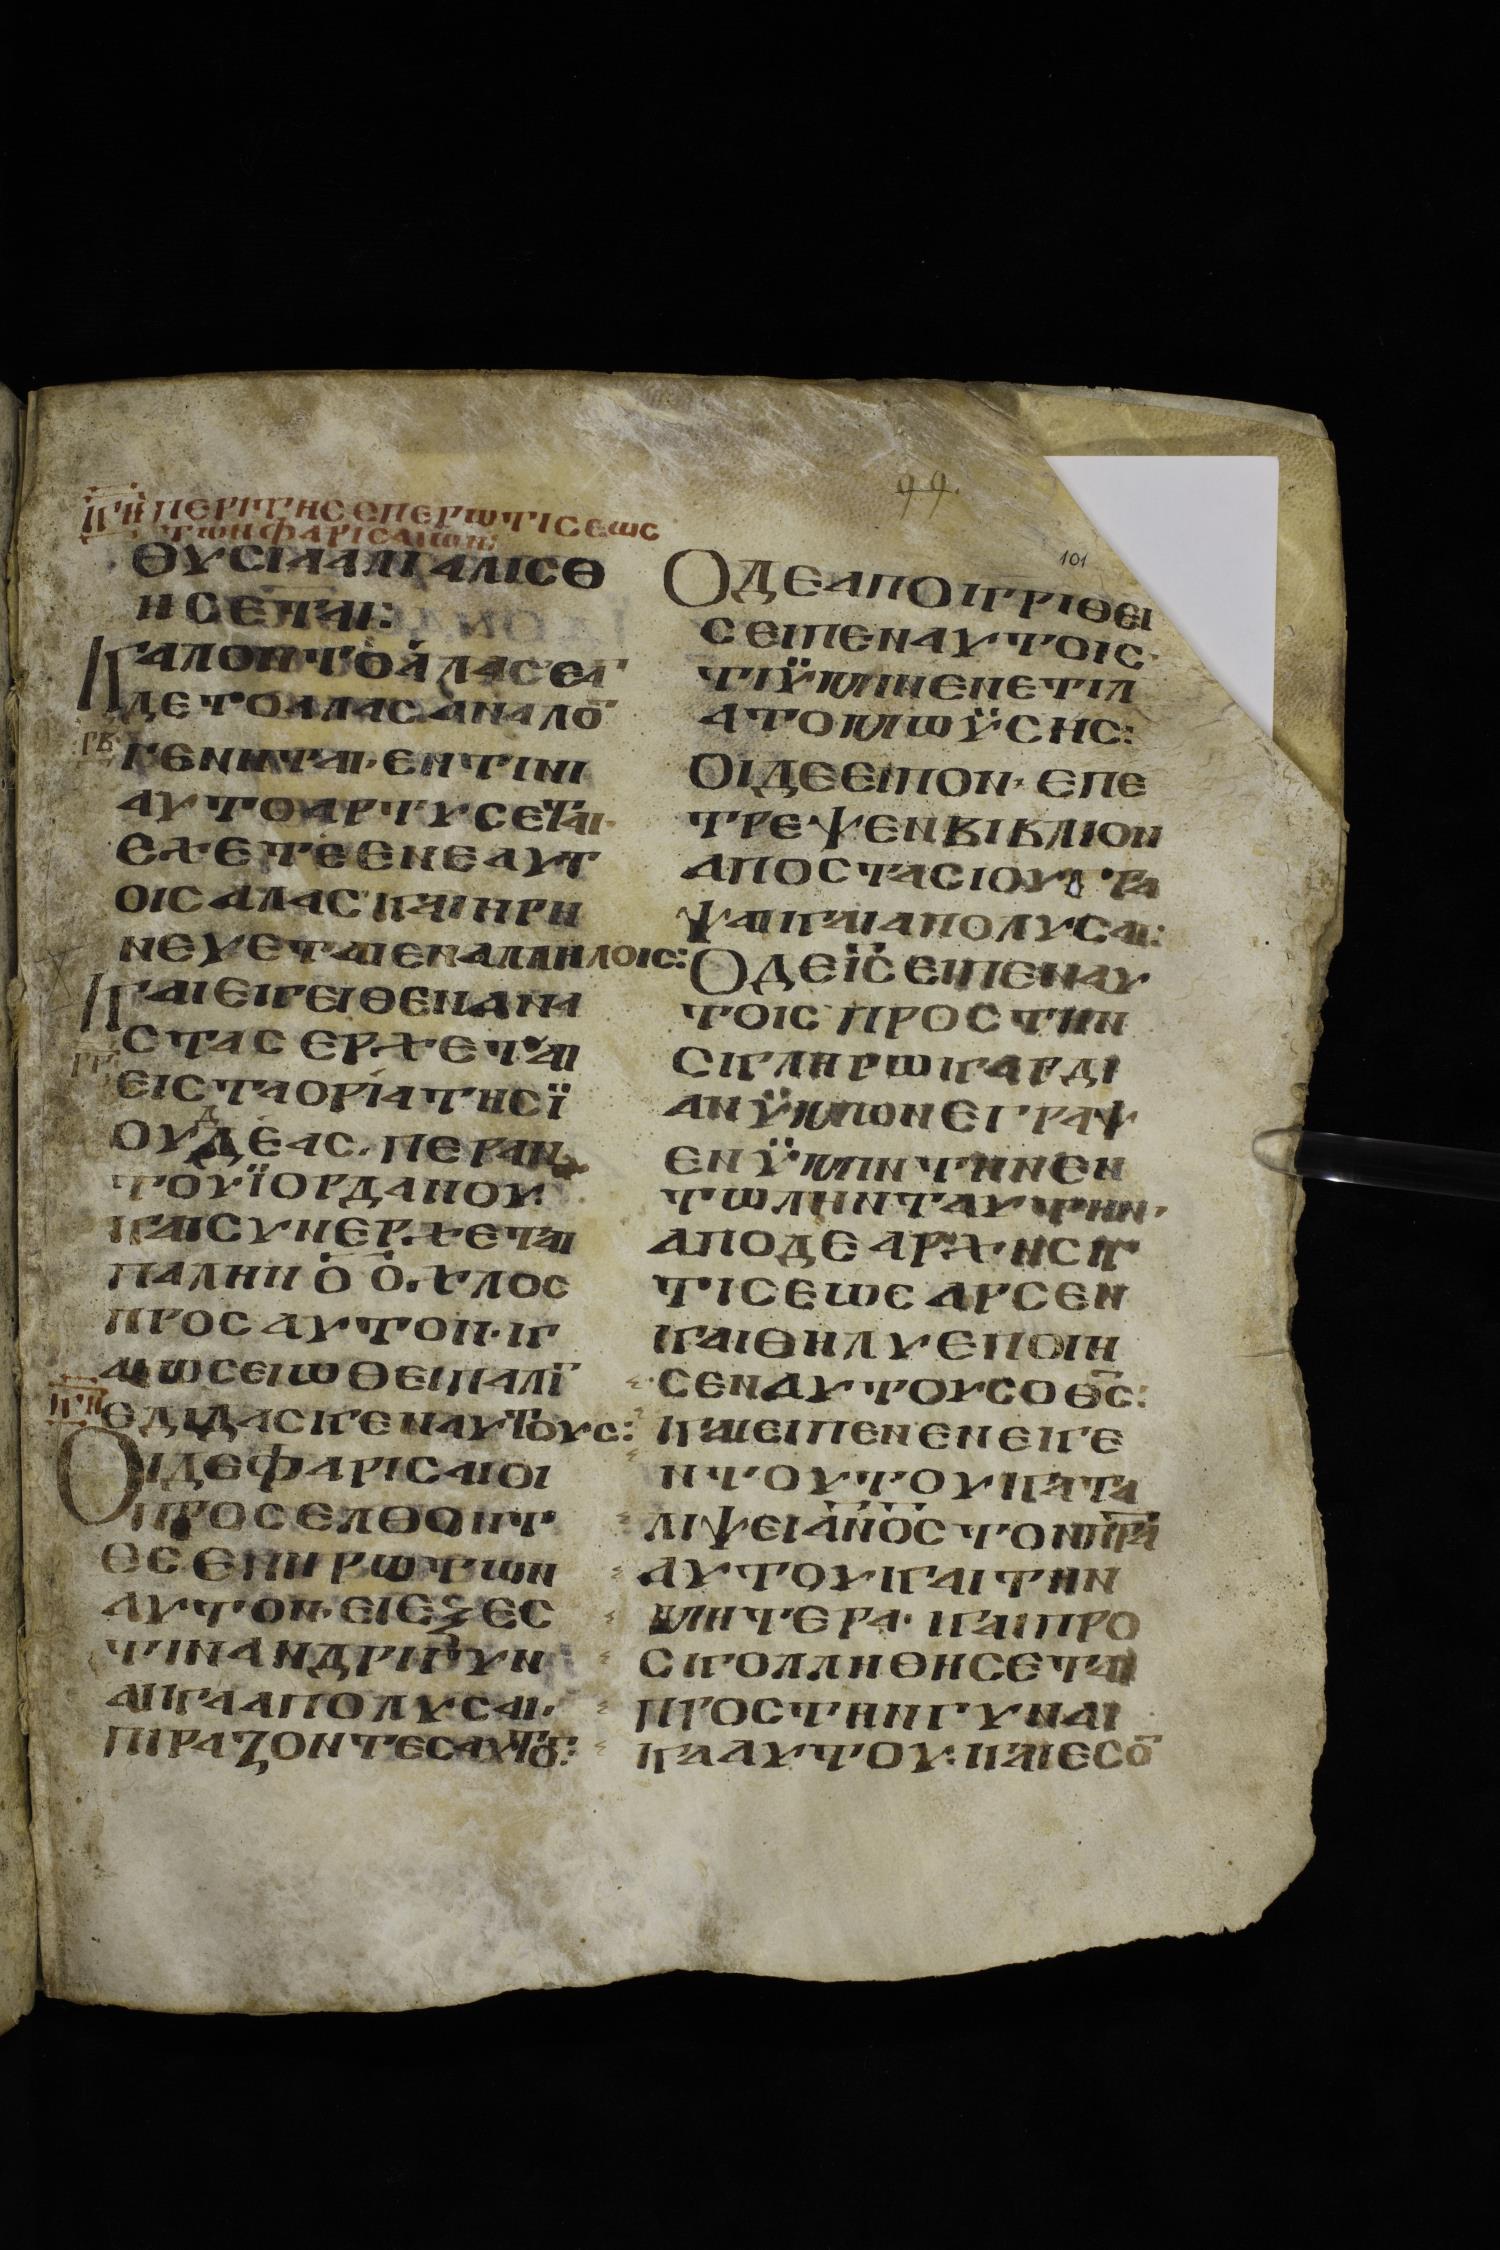 99.
101
ΚΗ ΠΕΡΙΤΗСΕΠΕΡωΤΙСΕωС
ΤωΝΦΑΡΙСΑΙωΝ:
ΘΥСΙΑΑΛΙΑΛΙСΘ
ΗСΕΤΑΙ:
ΚΑΛΟΝΤΟΑΛΑСΕᾹ
ΔΕΤΟΑΛΑСΑΝΑΛΟ̄
ΡΒ
ΓΕΝΗΤΑΙ·ΕΝΤΙΝΙ
ΑΥΤΟΑΡΤΥСΕΤΑΙ·
ΕΧΕΤΕΕΝΕΑΥΤ
ΟΙСΑΛΑС ΚΑΙΗΡΗ
ΝΕΥΕΤΑΙΕΝΑΛΛΗΛΟΙС:
ΚΑΙΕΙΚΕΙΘΕΝΑΝΑ
СΤΑСΕΡΧΕΤΑΙ
ΡΓ
ΕΙСΤΑΟΡΙΑΤΗСΪ
ΟΥΔΕΑС·ΠΕΡΑΝ
ΤΟΥΪΟΡΔΑΝΟΥ
ΚΑΙСΥΝΕΡΧΕΤΑΙ
ΠΑΛΗΝ Ο̄ Ο̄ΧΛΟС
ΠΡΟСΑΥΤΟΝ·Κ
ΑΙωСΕΙωΘΕΙΠΑΛῙ
ΚΗ
ΕΔΙΔΑСΚΕΝΑΥΤΟΥС:
ΟΙΔΕΦΑΡΙСΑΙΟΙ
ΠΡΟСΕΛΘΟΝΤ
ΕС ΕΠΗΡωΤωΝ
ΑΥΤΟΝ·ΕΙΕΞΕС
ΤΙΝΑΝΔΡΙΓΥΝ
ΑΙΚΑΑΠΟΛΥСΑΙ·
ΠΙΡΑΖΟΝΤΕСΑΥΤΟ̄:
ΟΔΕΑΠΟΙΚΡΙΘΕΙ
СΕΙΠΕΝΑΥΤΟΙС·
ΤΙΫΜΙΝΕΝΕΤΙΛ
ΑΤΟΜωΫСΗС:
ΟΙΔΕΕΙΠΟΝ·ΕΠΕ
ΤΡΕΨΕΝΒΙΒΛΙΟΝ
ΑΠΟСΤΑСΙΟΥΓΡΑ
ΨΑΙΚΑΙΑΠΟΛΥСΑΙ:
ΟΔΕῙС̄ΕΙΠΕΝΑΥ
ΤΟΙС ΠΡΟСΤΗΝ
СΚΛΗΡωΚΑΡΔΙ
ΑΝΫΜωΝΕΓΡΑΨ
ΕΝΫΜΙΝΤΗΝΕΝ
ΤωΛΗΝΤΑΥΤΗΝ·
ΑΠΟΔΕΑΡΧΗСΚ
ΤΙСΕωС ΑΡСΕΝ
ΚΑΙΘΗΛΥΕΠΟΙΗ
СΕΝΑΥΤΟΥСΟΘ̄С̄:
ΚΑΙΕΙΠΕΝΕΝΕΙΚΕ
ΝΤΟΥΤΟΥΚΑΤΑ
ΛΙΨΕΙᾹΝ̄Ο̄СΤΟΝΠ̄Ρ̄Ᾱ
ΑΥΤΟΥΚΑΙΤΗΝ
ΜΗΤΕΡΑ·ΚΑΙΠΡΟ
СΚΟΛΛΗΘΗСΕΤΑΙ
ΠΡΟСΤΗΝΓΥΝΑΙ
ΚΑΑΥΤΟΥ:ΚΑΙΕСΟ̄